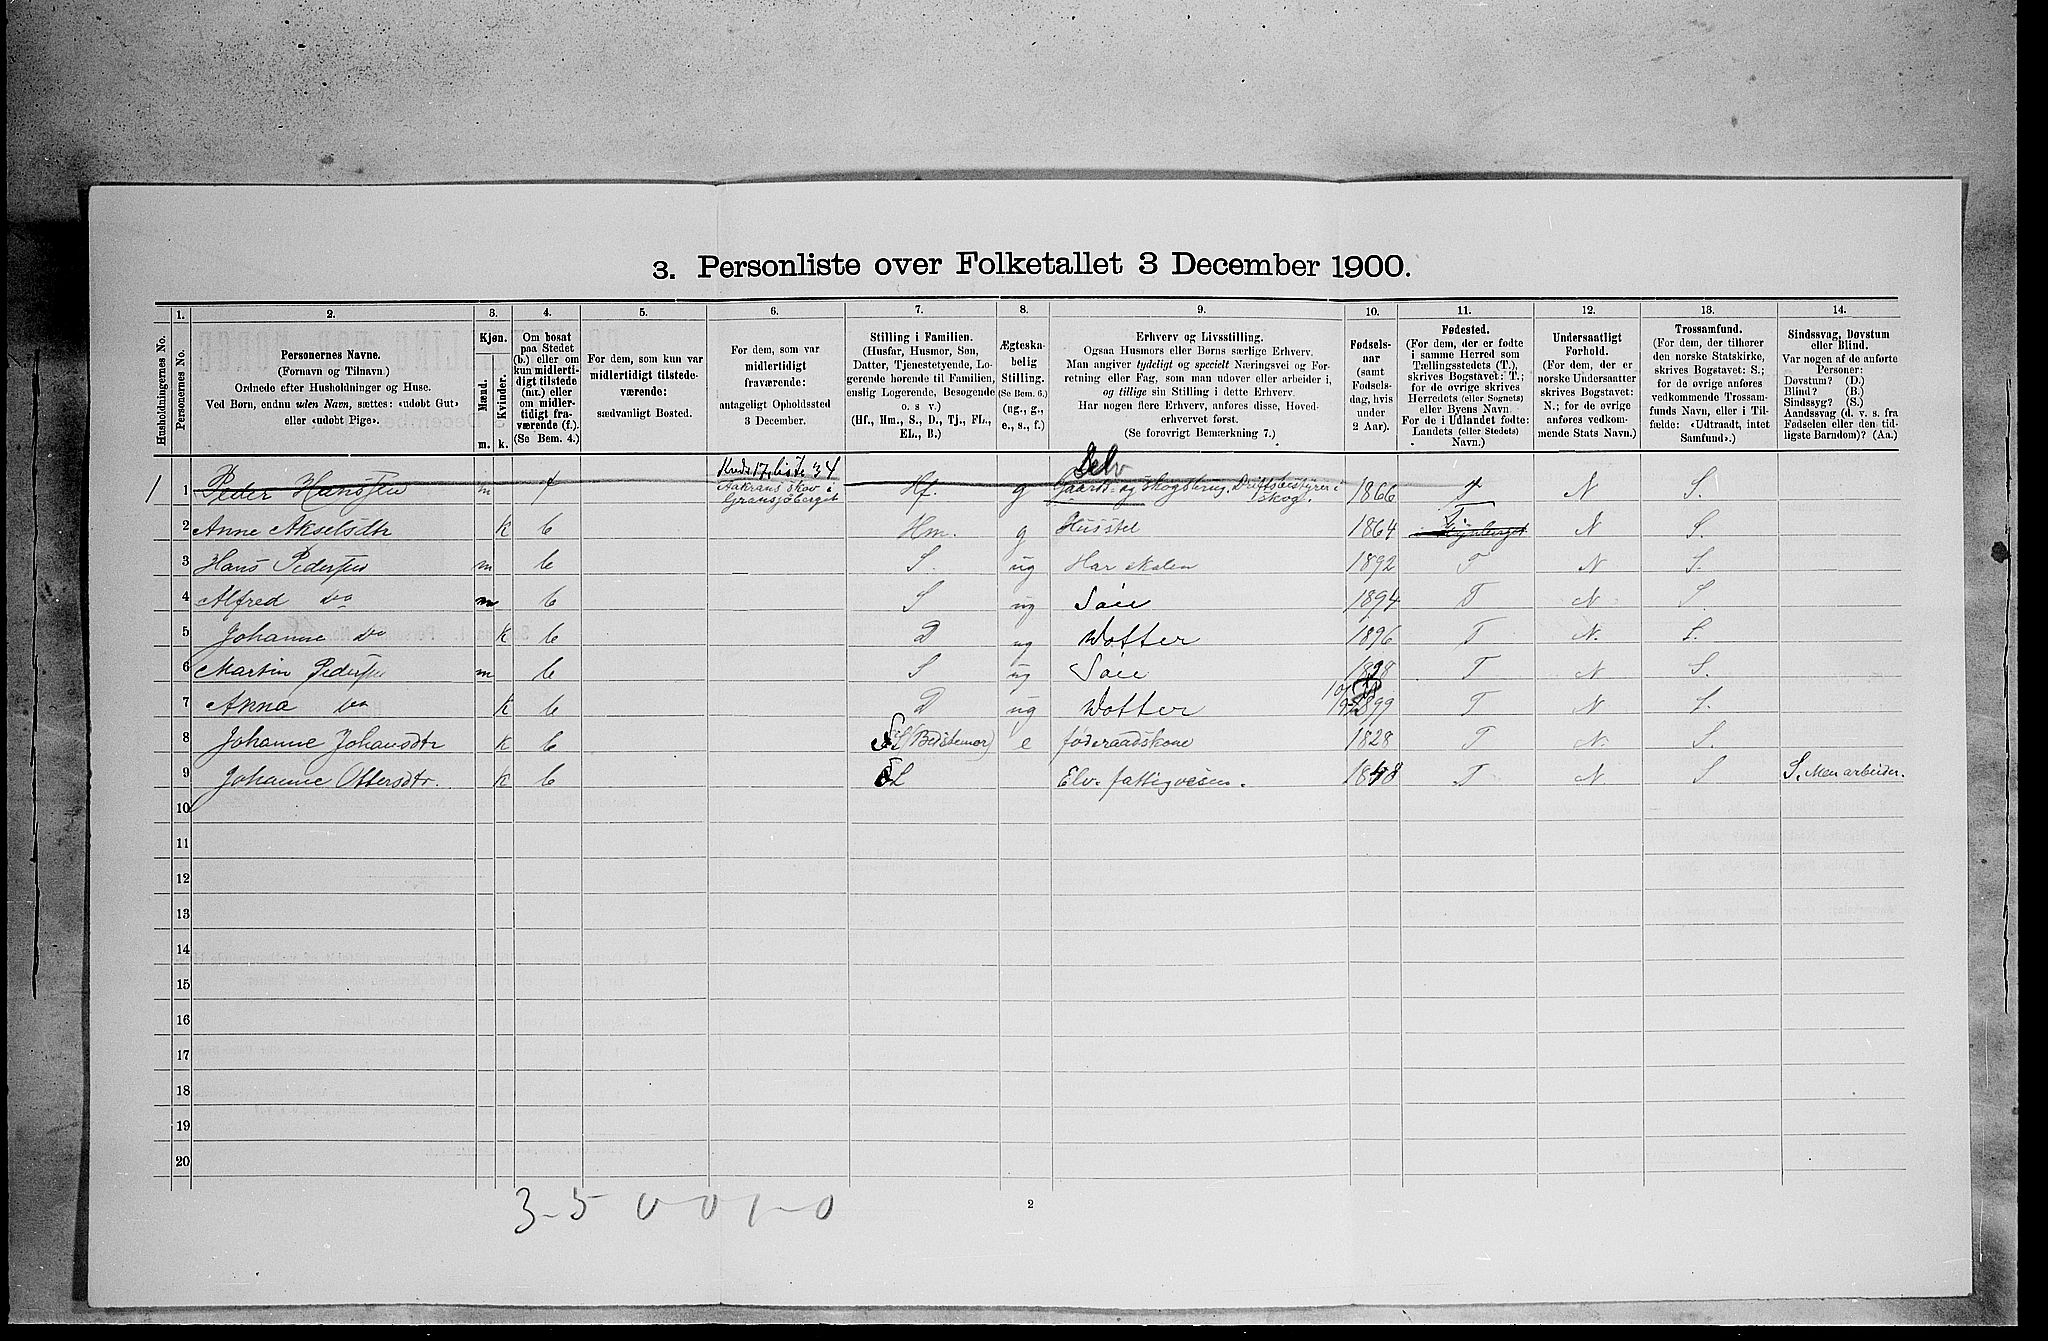 3. Personliste over Folketallet 3 December 1900.
1. 2. 3. 4. 5. 6. 7. 8. 9. 10. 11. 12. 13. 14.
Husholdningernes No.
Personernes No.
Personernes Navne.
(Fornavn og Tilnavn.)
Ordnede efter Husholdninger og Huse.
Ved Børn, endnu uden Navn, sættes: «udøbt Gut»
eller «udøbt Pige».
Kjøn.
Mænd.
Kvinder.
m. k.
Om bosat
paa Stedet
(b.) eller om
kun midlerti-
digt tilstede
(mt.) eller
om midler-
tidigt fra-
værende (f.).
(Se Bem. 4.)
For dem, som kun var
midlertidigt tilstede-
værende:
sædvanligt Bosted.
For dem, som var
midlertidigt
fraværende:
antageligt Opholdssted
3 December.
Stilling i Familien.
(Husfar, Husmor, Søn,
Datter, Tjenestetyende, Lo-
gerende hørende til Familien,
enslig Logerende, Besøgende
o. s v.)
(Hf., Hm., S., D., Tj., FL.,
EL., B.)
Ægteska-
belig
Stilling.
(Se Bem. 6.)
(ug., g.,
e., s., f.)
Erhverv og Livsstilling.
Ogsaa Husmors eller Børns særlige Erhverv.
Man angiver tydeligt og specielt Næringsvei og For-
retning eller Fag, som man udøver eller arbeider i,
og tillige sin Stilling i dette Erhverv.
Har nogen flere Erhverv, anføres disse, Hoved-
erhvervet først.
(Se forøvrigt Bemærkning 7.)
Fødsels-
aar
(samt
Fødsels-
dag, hvis
under
2 Aar).
Fødested.
(For dem, der er fødte
i samme Herred som
Tællingsstedets (T.),
skrives Bogstavet: T.;
for de øvrige skrives
Herredets (eller Sognets)
eller Byens Navn.
For de i Udlandet fødte:
Landets (eller Stedets)
Navn.)
Undersaatligt
Forhold.
(For dem, der er
norske Undersaatter
skrives Bogstavet:
N.; for de øvrige
anføres vedkom-
mende Stats Navn.)
Trossamfund.
(For dem, der tilhører
den norske Statskirke,
skrives Bogstavet: S.;
for de øvrige anføres
vedkommende Trossam-
funds Navn, eller i Til-
fælde: «Udtraadt, intet
Samfund».)
Sindssvag, Døvstum
eller Blind.
Var nogen af de anførte
Personer:
Døvstum? (D.)
Blind? (B.)
Sindssyg? (S.)
Aandssvag (d. v. s. fra
Fødselen eller den tid-
ligste Barndom)? (Aa.)
Kreds 17, liste 34
Selv
1 1 Peder Hanssen m f Aakrans skov i Hf. g Gaards- og Skogbrug. Driftsbestyrer i 1866 T N S.
Gransjøberget skog.
2 Anne Akselsdtr k b Hm. g Husstel 1864 T N S.
3 Hans Pedersen m b S. ug Har skolen 1892 T N S.
4 Alfred do m b S ug Søn 1894 T N S
5 Johanne do k b D ug Dotter 1896 T N. S.
6 Martin Pedersen m b S ug Søn T N S.
7 Anna do k b D ug Dotter 1899 T N S.
8 Johanne Johansdtr k b (Bedstemor) e føderaadskone 1828 T N. S.
9 Johanne Ottersdtr. k b EL Elv. fattigvesen. 1848 T N S S. Men arbeider.
10
11
12
13
14
15
16
17
18
19
20
3-5 0 0 1-0
2